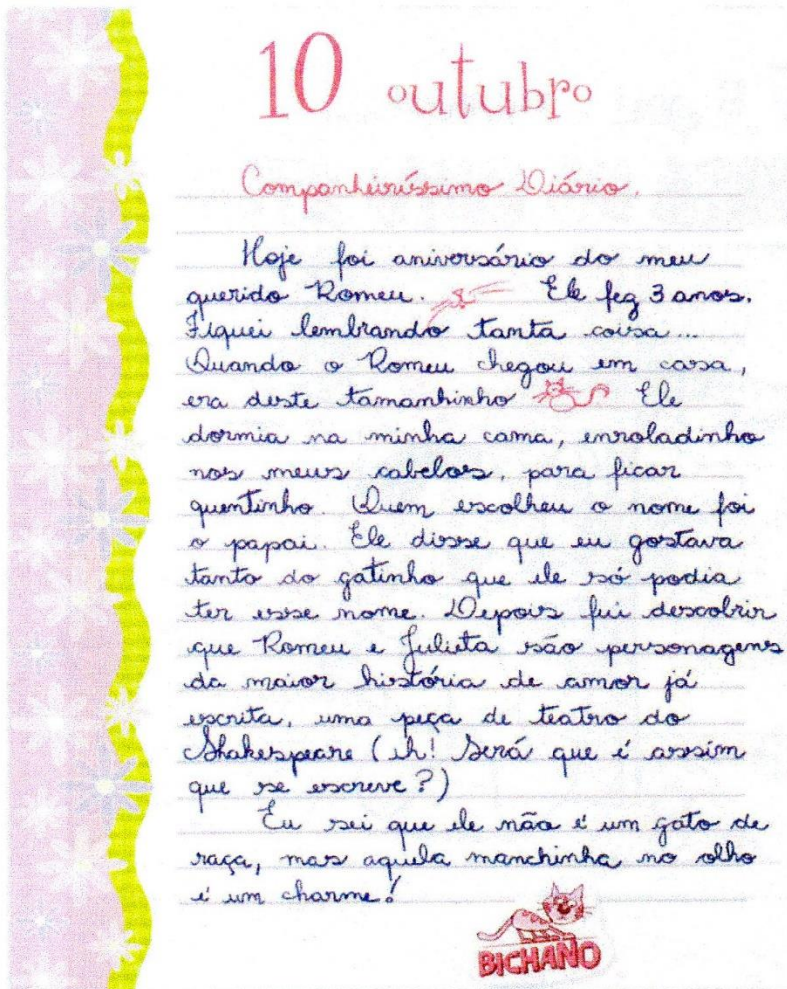 10 outubro
Companheiríssimo Diário,
Hoje foi aniversário do meu
querido Romeu. Ele fez 3 anos.
Fiquei lembrando tanta coisa...
Quando o Romeu chegou em casa,
era deste tamanhinho Ele
dormia na minha cama, enroladinho
nos meus cabelos, para ficar
quentinho. Quem escolheu o nome foi
o papai. Ele disse que eu gostava
tanto do gatinho que ele só podia
ter esse nome. Depois fui descobrir
que Romeu e Julieta são personagens
da maior história de amor já
escrita, uma peça de teatro do
Shakespeare (ih! Será que é assim
que se escreve?)
Eu sei que ele não é um gato de
raça, mas aquela manchinha no olho
é um charme!
BICHANO